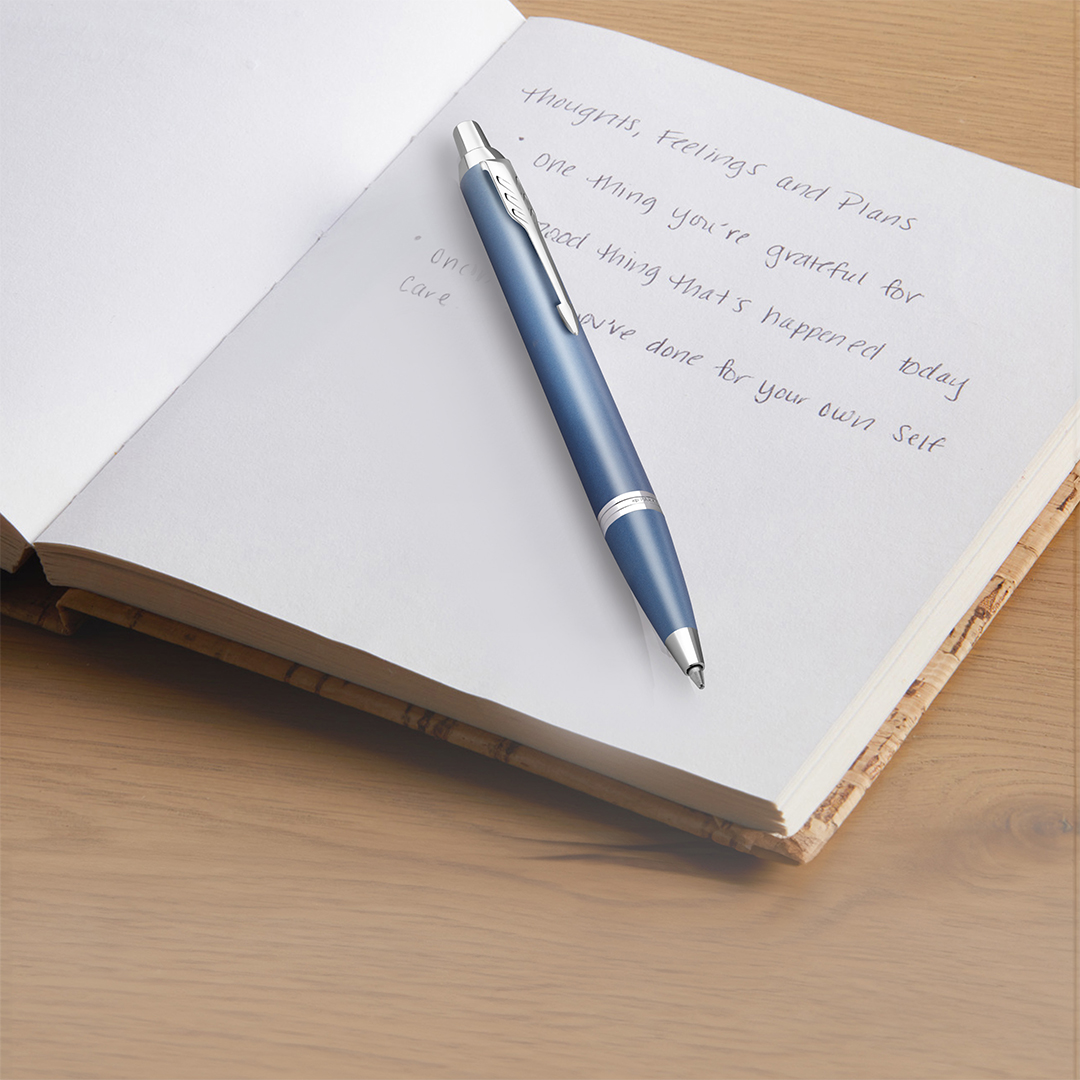 thoughts, Feelings and Plans
• one thing you're grateful for
good thing that's happened today
• one you've done for your own self
care